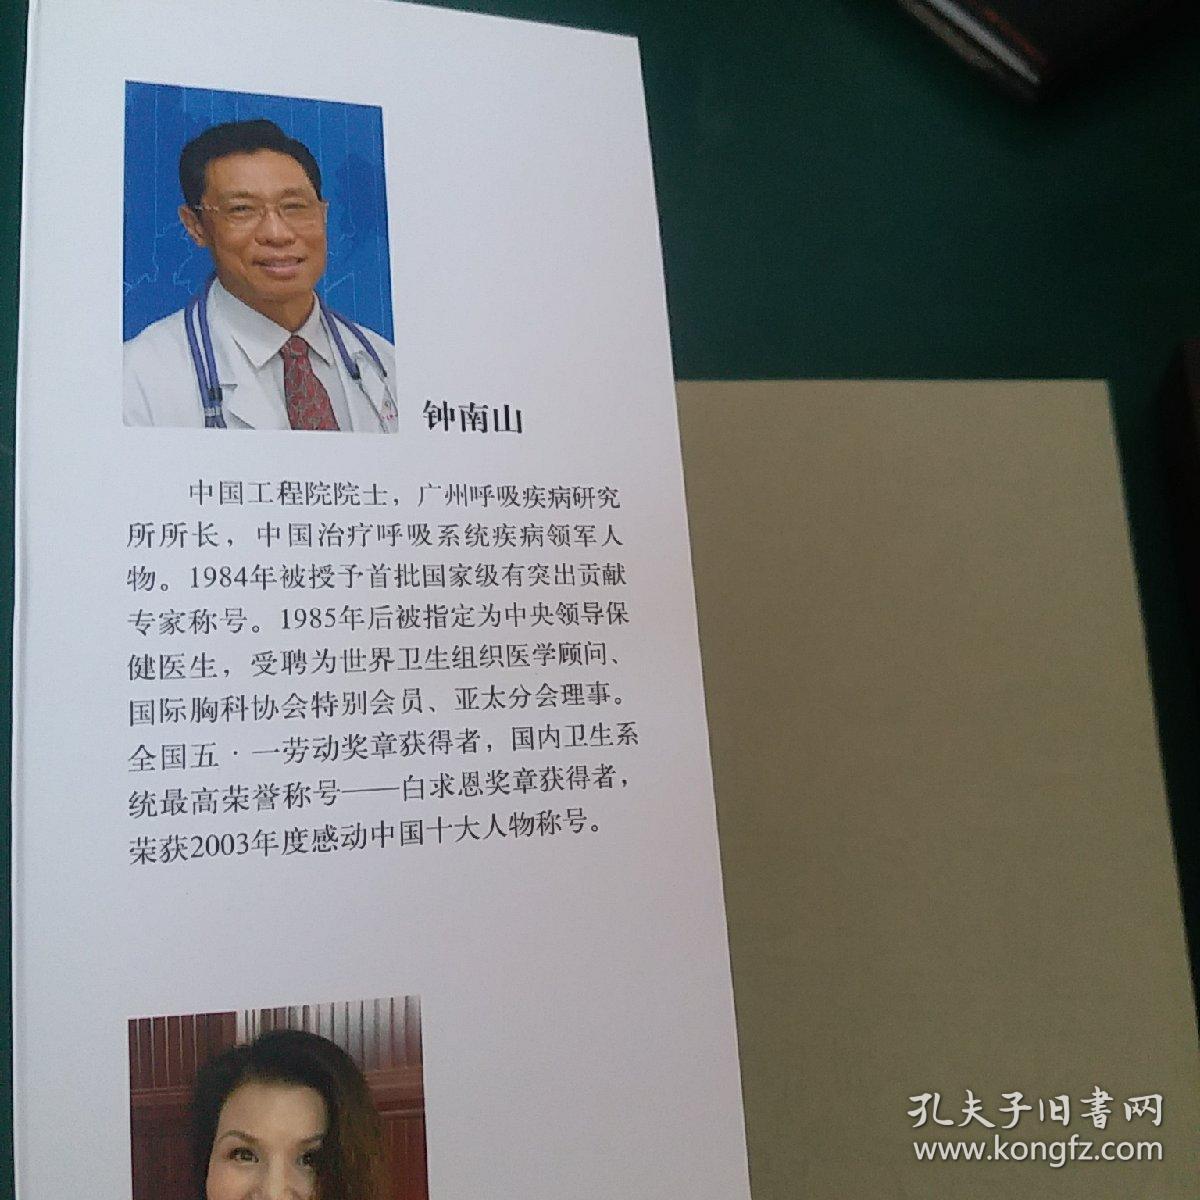 钟南山
中国工程院院士，广州呼吸疾病研究
所所长，中国治疗呼吸系统疾病领军人
物。1984年被授予首批国家级有突出贡献
专家称号。1985年后被指定为中央领导保
健医生，受聘为世界卫生组织医学顾问、
国际胸科协会特别会员、亚太分会理事。
全国五·一劳动奖章获得者，国内卫生系
统最高荣誉称号——白求恩奖章获得者，
荣获2003年度感动中国十大人物称号。
孔夫子旧書网
www.kongfz.com